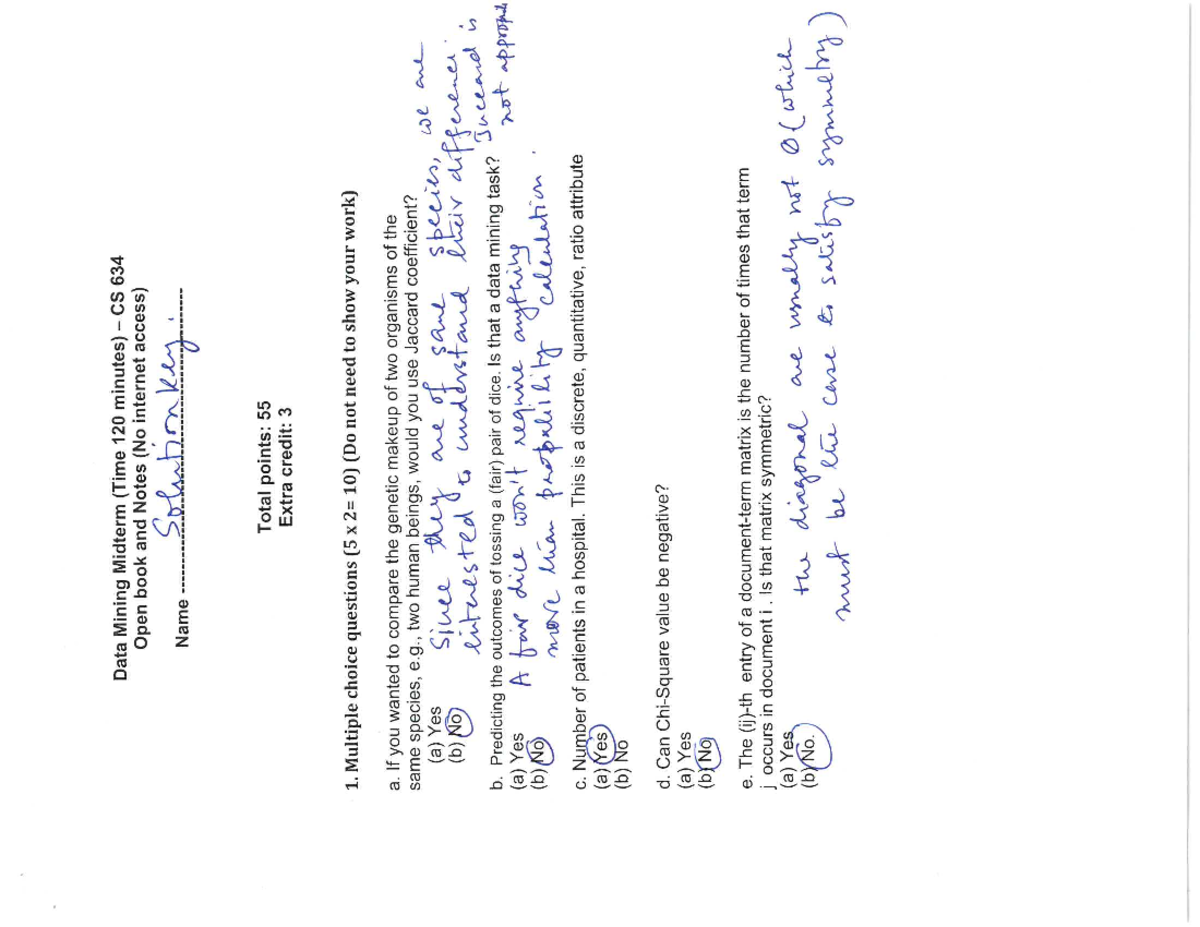 Data Mining Midterm (Time 120 minutes) – CS 634
Open book and Notes (No internet access)
Name Solution Key.
Total points: 55
Extra credit: 3
1. Multiple choice questions (5 x 2= 10) (Do not need to show your work)
a. If you wanted to compare the genetic makeup of two organisms of the
same species, e.g., two human beings, would you use Jaccard coefficient?
(a) Yes
(b) No
Since they are of same species, we are
interested to understand their difference.
Jaccard is
not appropri
b. Predicting the outcomes of tossing a (fair) pair of dice. Is that a data mining task?
(a) Yes
(b) No
A fair dice won't require anything
more than probability calculation.
c. Number of patients in a hospital. This is a discrete, quantitative, ratio attribute
(a) Yes
(b) No
d. Can Chi-Square value be negative?
(a) Yes
(b) No
e. The (ij)-th entry of a document-term matrix is the number of times that term
j occurs in document i . Is that matrix symmetric?
(a) Yes
(b) No.
the diagonal are usually not 0 (which
must be the case to satisfy symmetry)